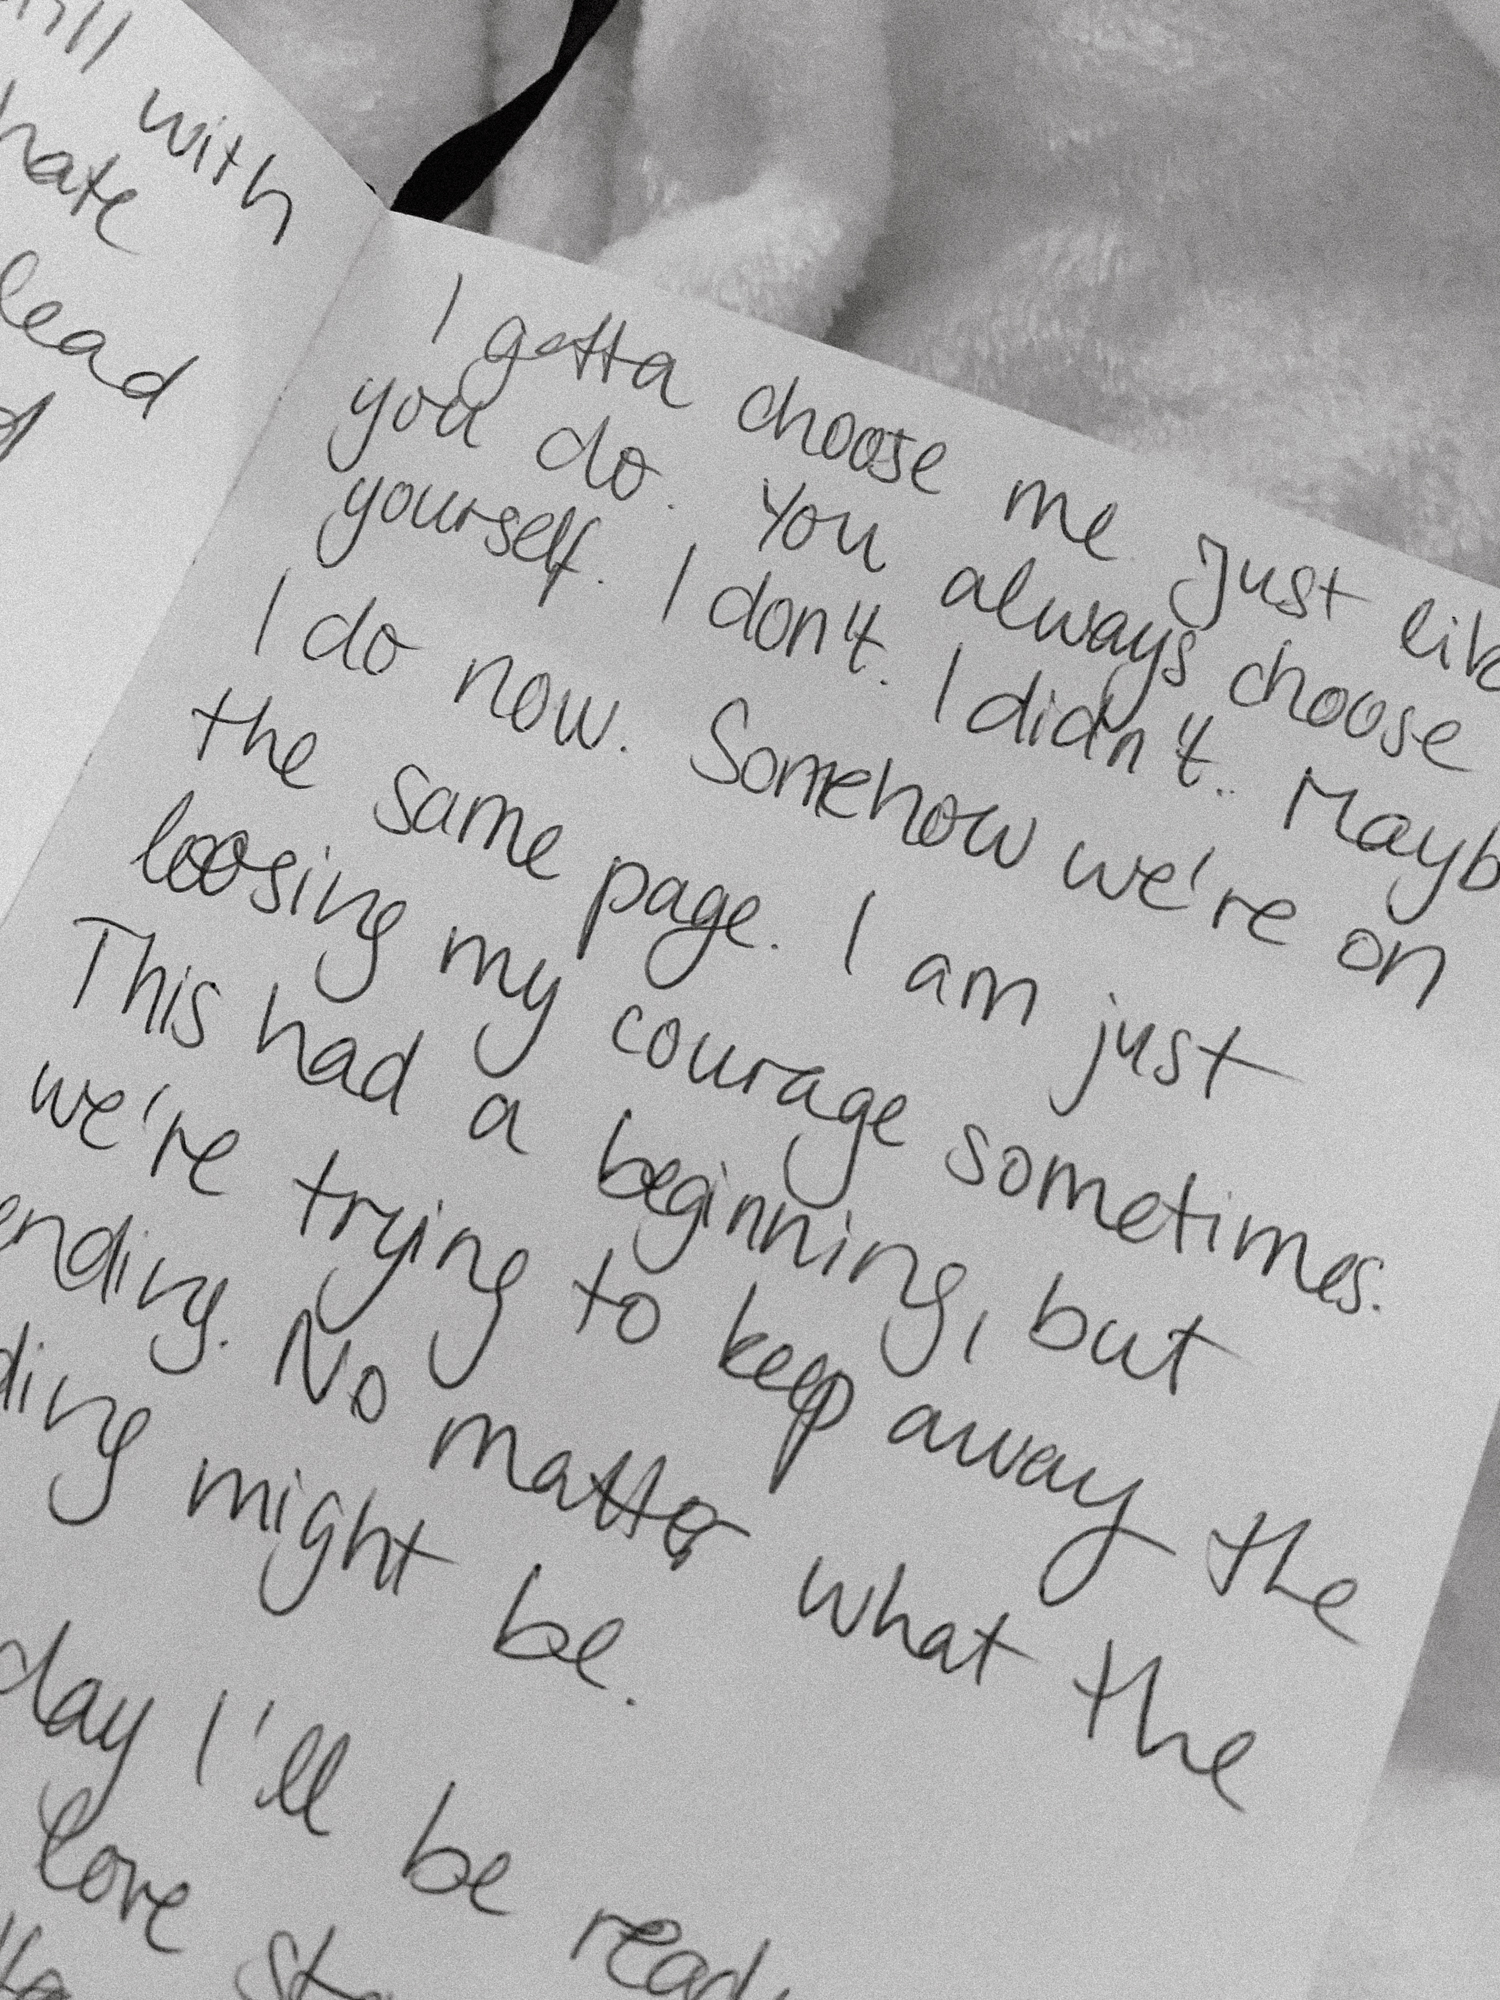 with
hate
lead
I gotta choose me just
you do. You always choose
yourself. I don't. I didn't..
I do now. Somehow we're on
the same page. I am just
loosing my courage sometimes.
This had a beginning, but
we're trying to keep away the
ending. No matter what the
might be.
day I'll be
love